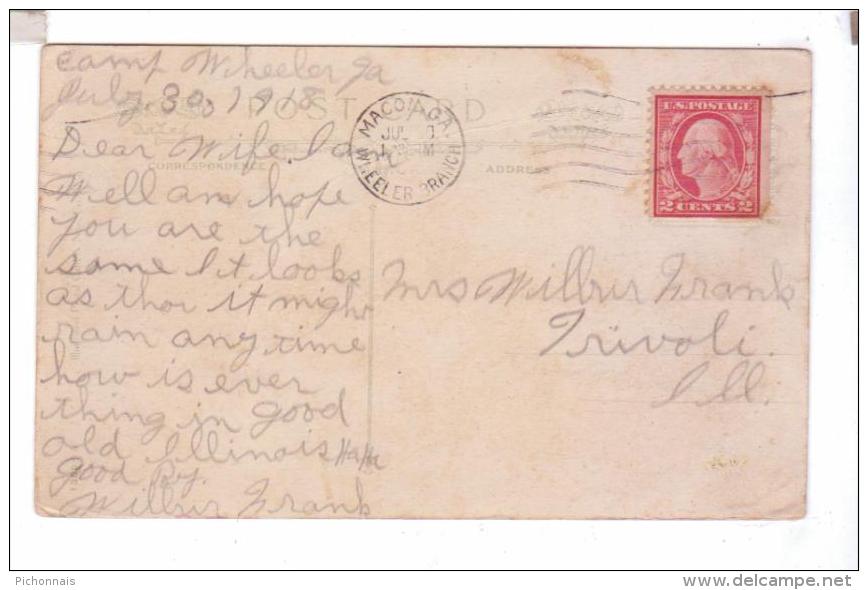 Camp Wheeler Ga
July 30, 1918
POST CARD
Dear Wife. I am
CORRESPONDENCE
ADDRESS
Well am hope
you are the
same It looks
as thor it might
rain any time
how is ever
thing in good
old Illinois HaHa
good By.
Wilbur Frank
MACON, GA.
JUL 30
WHEELER BRANCH
U.S. POSTAGE
2 CENTS 2
Mrs Wilbur Frank
Trivoli.
Ill.
Pichonnais
delcampe.net